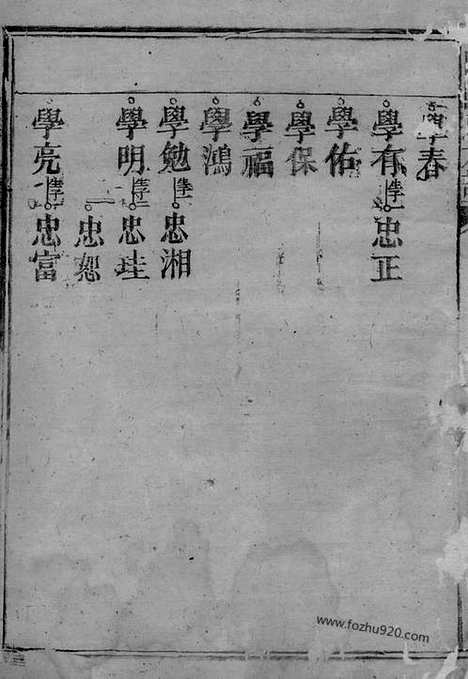 學春
學有 忠正
學佑
學保
學福
學鴻
學勉 忠湘
學明 忠珪
忠恕
學亮 忠富
www.fozhu920.com